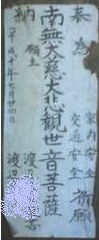 奉 為
家内安全
交通安全
祈願
南無大慈大悲観世音菩薩
納 願主
渡
渡
平成十年七月廿四日